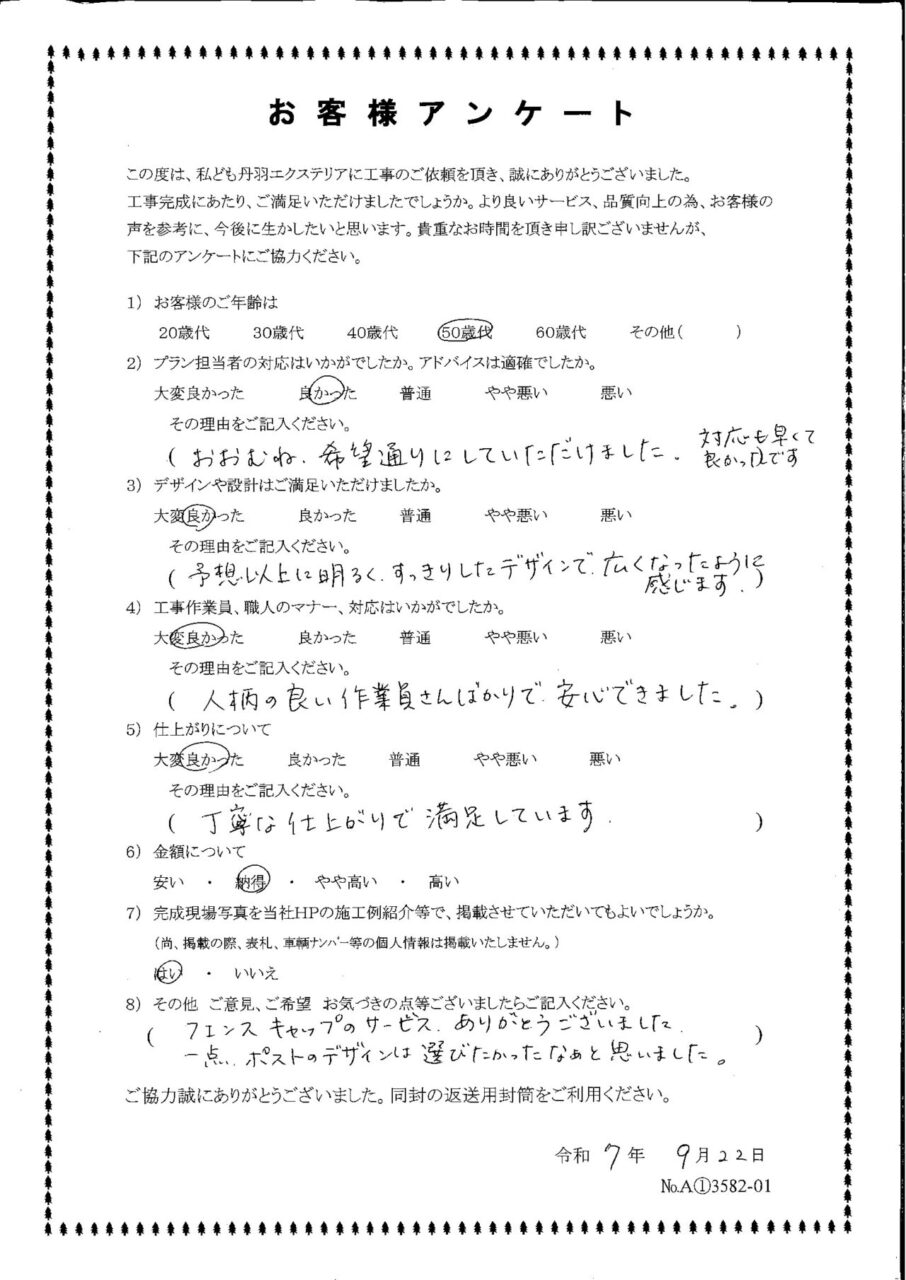 お客様アンケート
この度は、私ども丹羽エクステリアに工事のご依頼を頂き、誠にありがとうございました。
工事完成にあたり、ご満足いただけましたでしょうか。より良いサービス、品質向上の為、お客様の
声を参考に、今後に生かしたいと思います。貴重なお時間を頂き申し訳ございませんが、
下記のアンケートにご協力ください。
1) お客様のご年齢は
20歳代 30歳代 40歳代 50歳代 60歳代 その他( )
2) プラン担当者の対応はいかがでしたか。アドバイスは適確でしたか。
大変良かった 良かった 普通 やや悪い 悪い
その理由をご記入ください。
( おおむね、希望通りにしていただけました。 対応も早くて
良かったです
3) デザインや設計はご満足いただけましたか。
大変良かった 良かった 普通 やや悪い 悪い
その理由をご記入ください。
( 予想以上に明るく、すっきりしたデザインで、広くなったように
感じます。)
4) 工事作業員、職人のマナー、対応はいかがでしたか。
大変良かった 良かった 普通 やや悪い 悪い
その理由をご記入ください。
( 人柄の良い作業員さんばかりで、安心できました。)
5) 仕上がりについて
大変良かった 良かった 普通 やや悪い 悪い
その理由をご記入ください。
( 丁寧な仕上がりで満足しています. )
6) 金額について
安い ・ 納得 ・ やや高い ・ 高い
7) 完成現場写真を当社HPの施工例紹介等で、掲載させていただいてもよいでしょうか。
(尚、掲載の際、表札、車輌ナンバー等の個人情報は掲載いたしません。)
はい ・ いいえ
8) その他 ご意見、ご希望 お気づきの点等ございましたらご記入ください。
( フェンスキャップのサービス、ありがとうございました. )
一点、ポストのデザインは選びたかったなぁと思いました。
ご協力誠にありがとうございました。同封の返送用封筒をご利用ください。
令和 7年 9月22日
No.A①3582-01